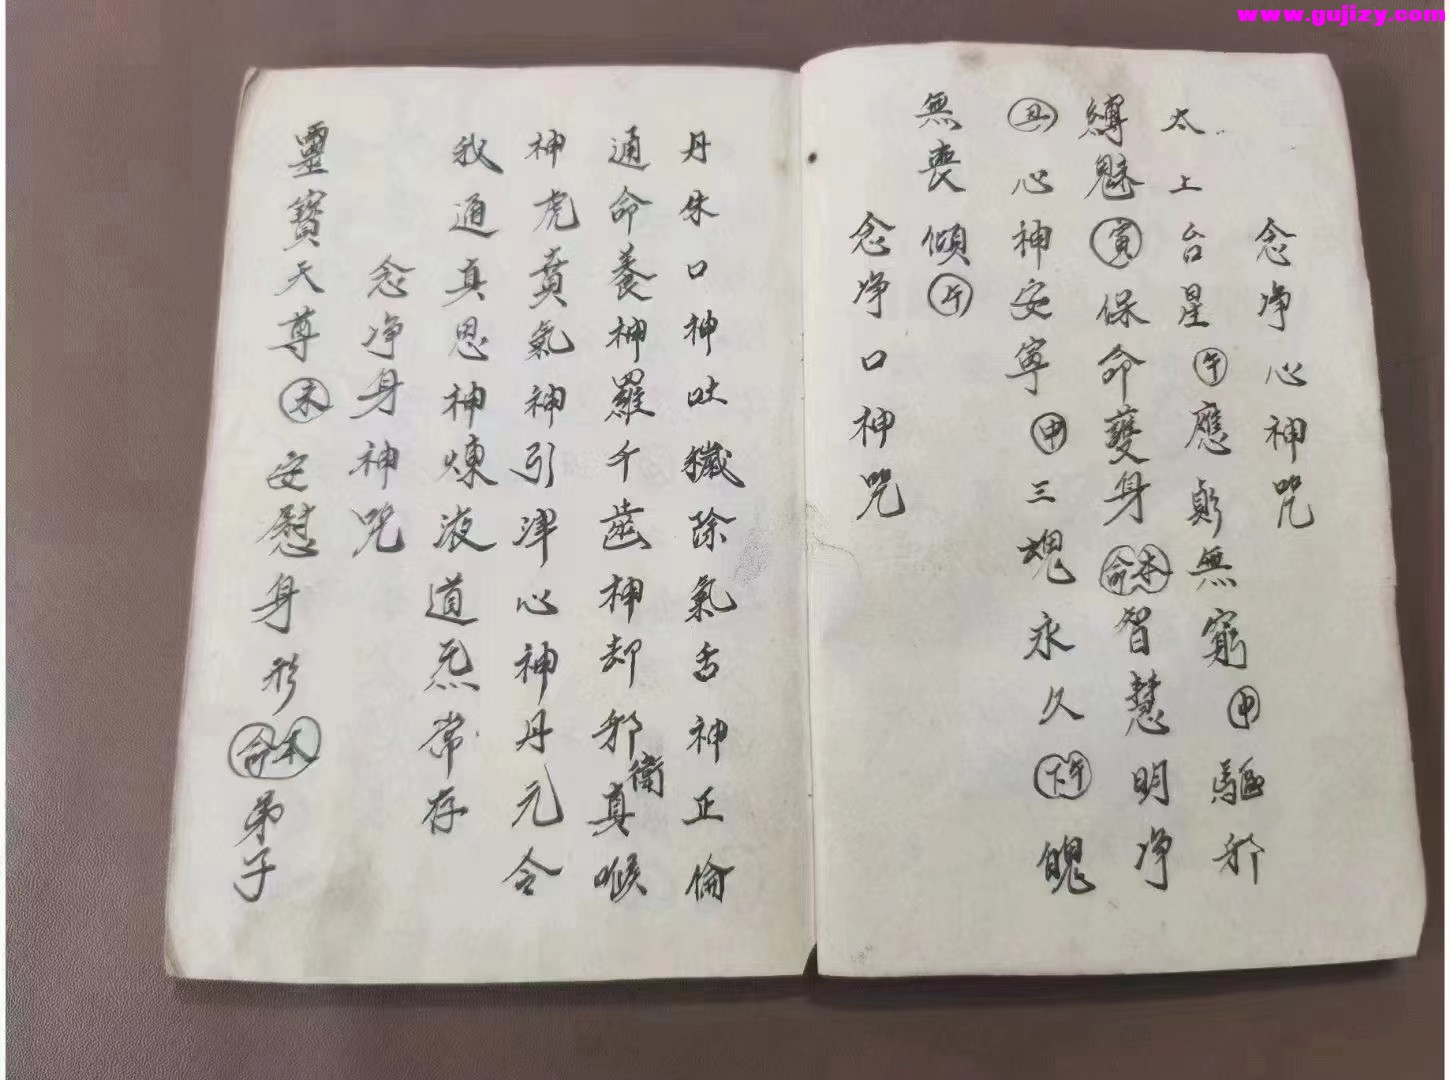 www.gujizy.com
念净心神咒
太上台星午應變無窮申驅邪
縛魅寅保命護身本命智慧明净
丑心神安寧申三魂永久下午魄
無喪傾午
念净口神咒
丹朱口神吐穢除氣舌神正倫
通命養神羅千齒神却邪衛真喉
神虎賁氣神引津心神丹元令
我通真思神煉液道炁常存
念净身神咒
靈寶天尊未安慰身形本命弟子